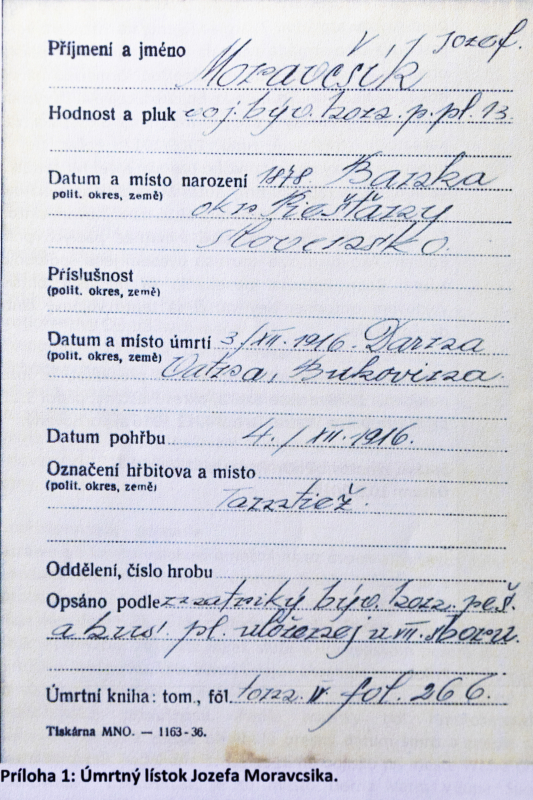 Příjmení a jméno Moravčšík Jozef.
Hodnost a pluk voj. býv. honv. p. pl. 13.
Datum a místo narození 1878 Banka
(polit. okres, země) okr. Piešťany
Slovensko.
Příslušnost
(polit. okres, země)
Datum a místo úmrtí 3/XII. 1916. Darna
(polit. okres, země) Vatra, Bukovina
Datum pohřbu 4./XII. 1916.
Označení hřbitova a místo
(polit. okres, země) Tamtiež.
Oddělení, číslo hrobu
Opsáno podle matriky býv. honv. peš.
a hus. pl. uloženej u VII. sboru.
Úmrtní kniha: tom., fól. tom. V fol. 266.
Tiskárna MNO. — 1163-36.
Príloha 1: Úmrtný lístok Jozefa Moravcsika.